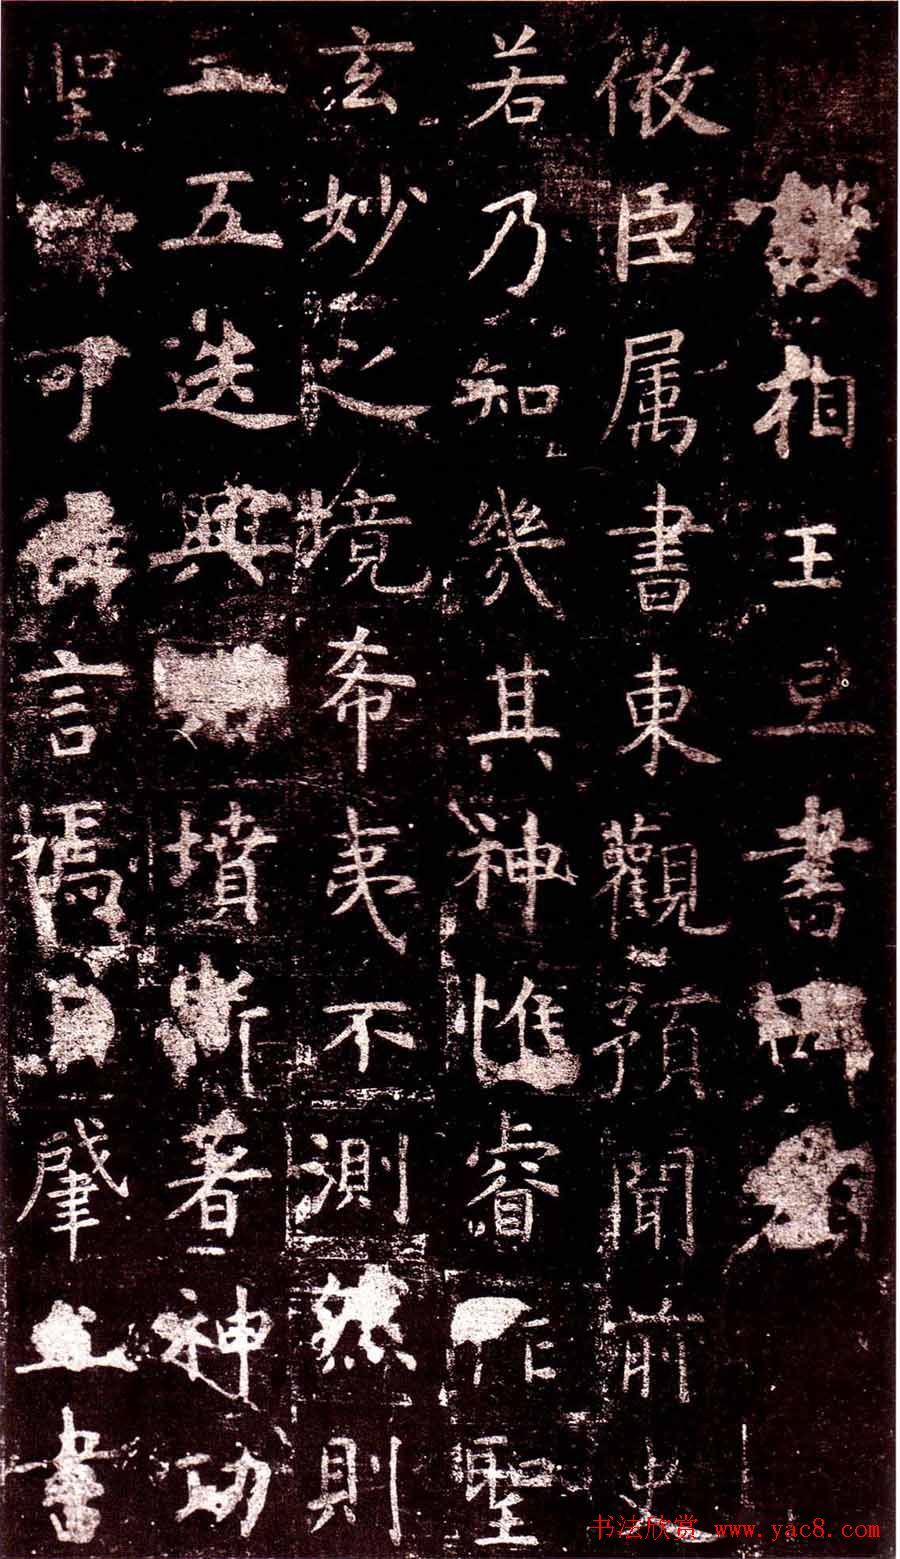 護相王旦書碑額
微臣属書東觀預聞前史
若乃知幾其神惟睿作聖
玄妙之境希夷不測然則
三五迭興典墳斯著神功
聖迹可得言焉自肇立書
书法欣赏 www.yac8.com